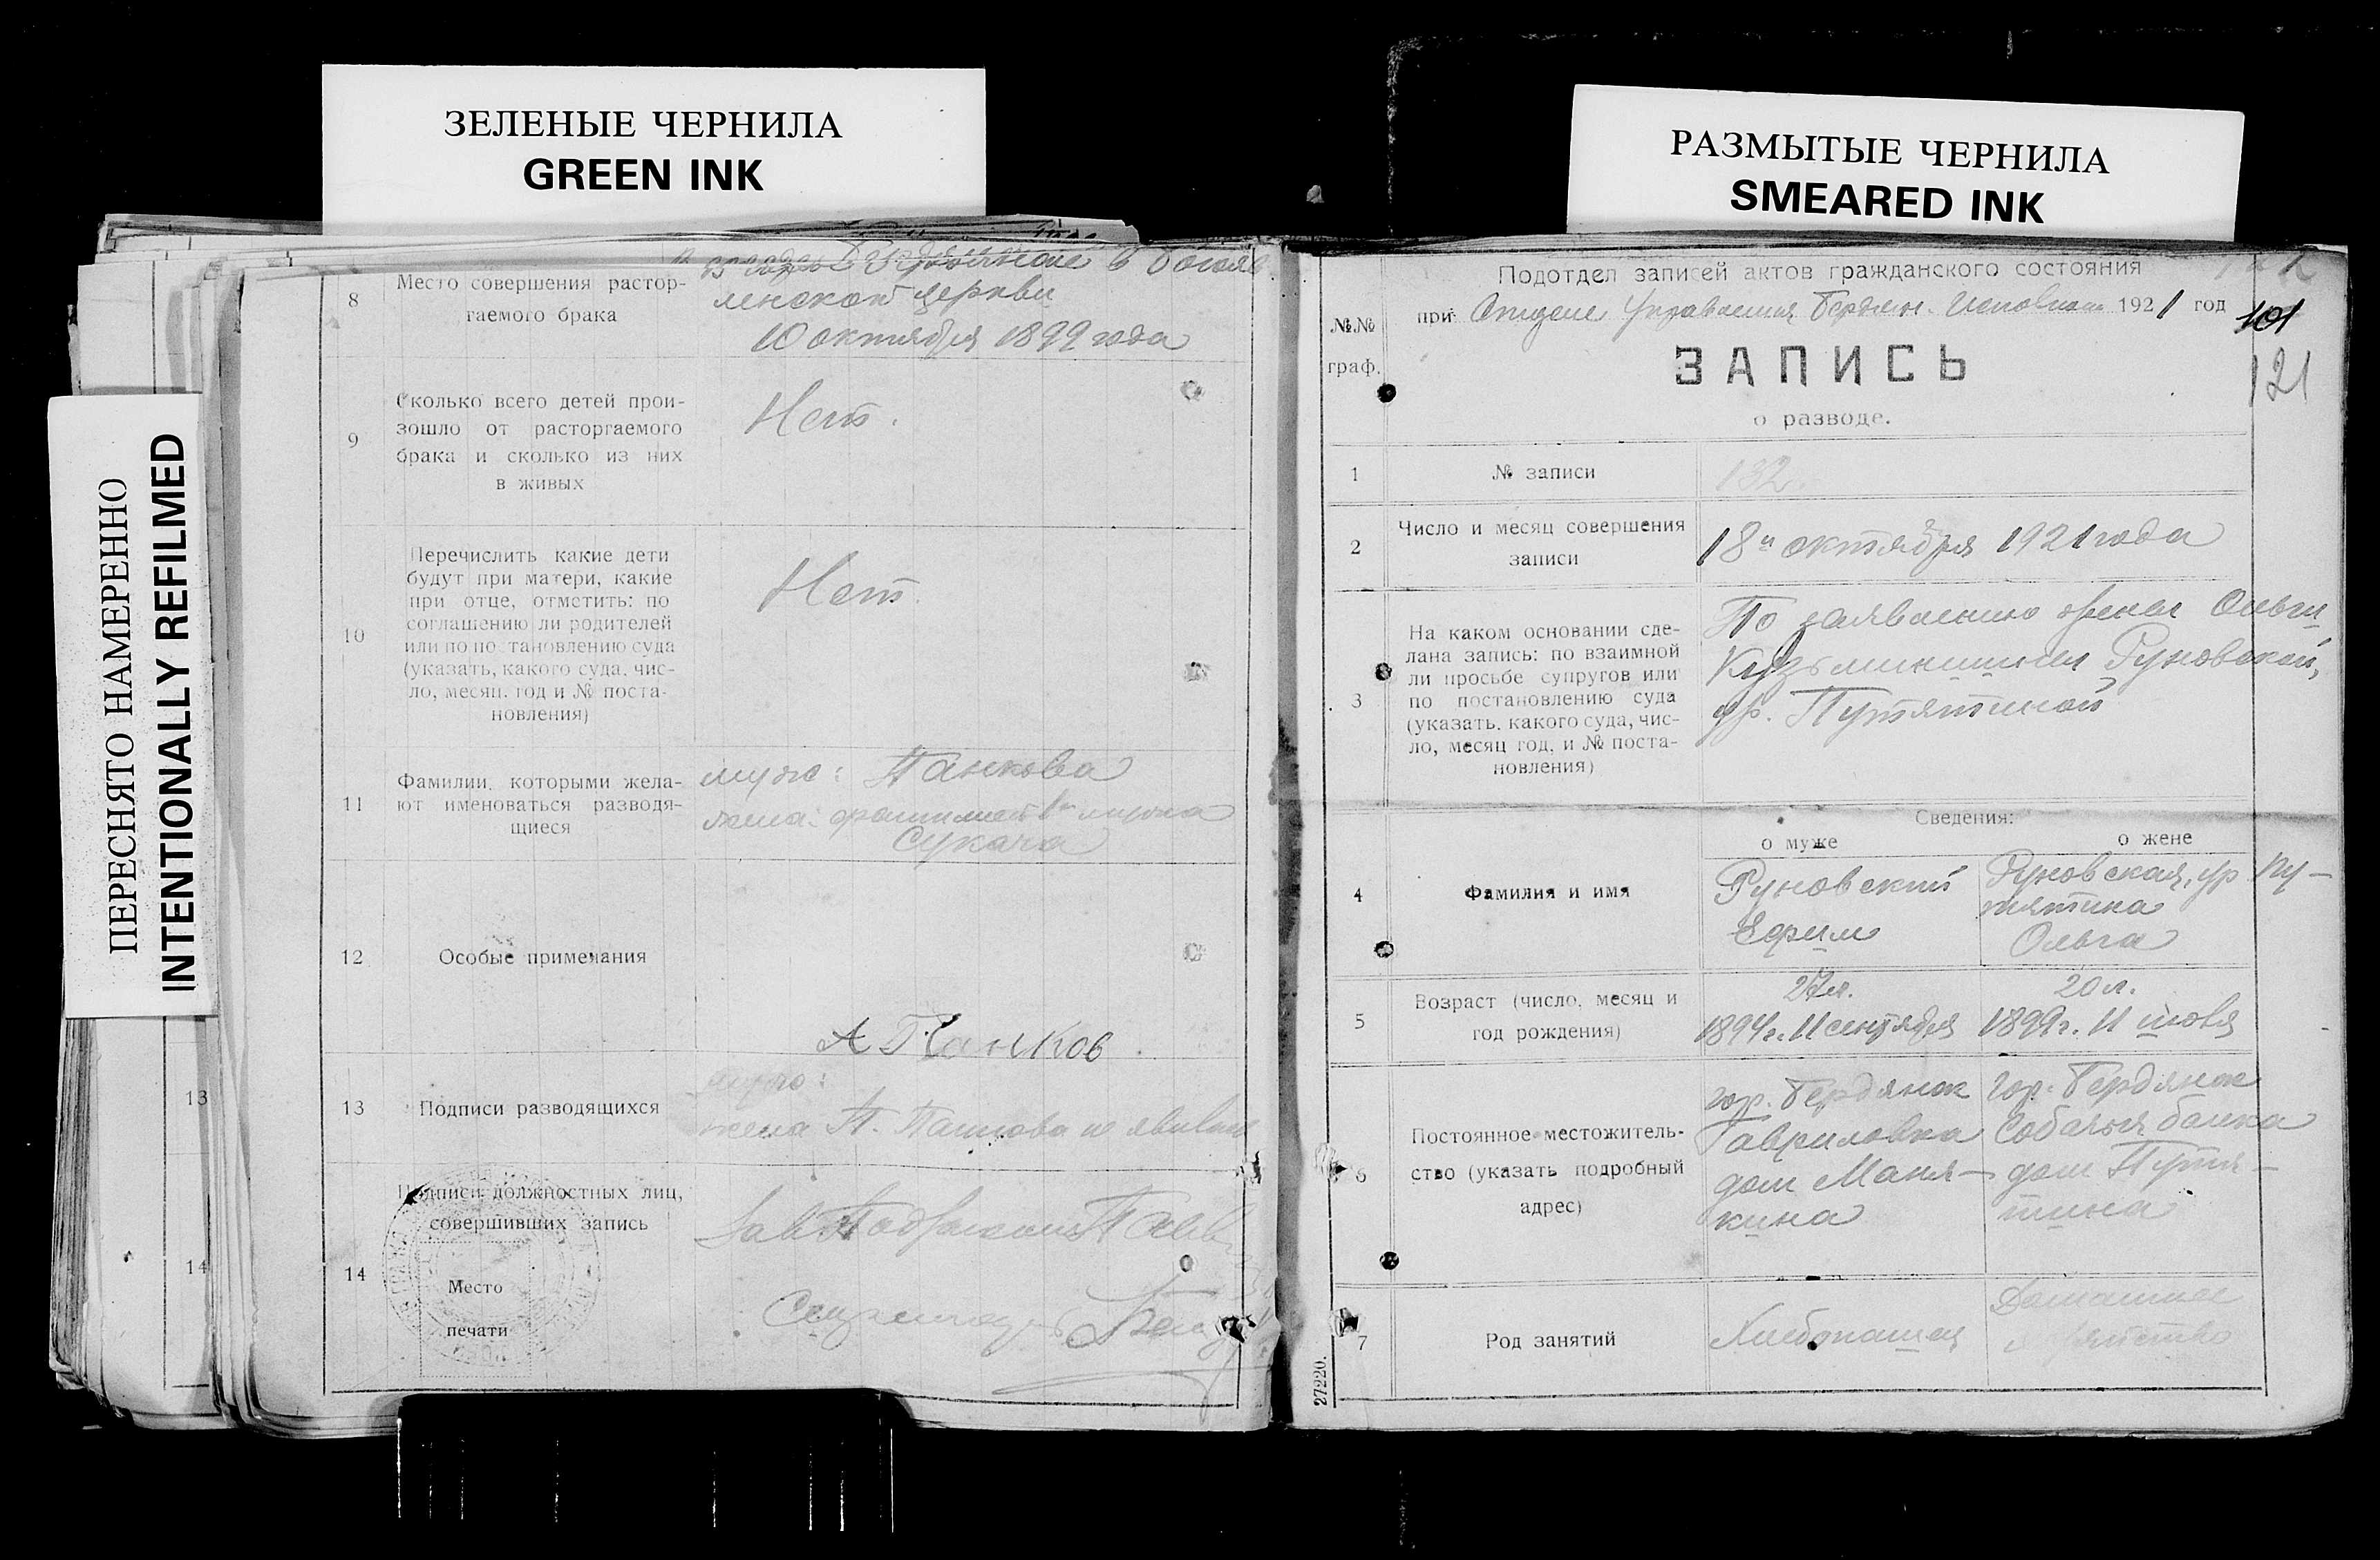 ЗЕЛЕНЫЕ ЧЕРНИЛА
GREEN INK
РАЗМЫТЫЕ ЧЕРНИЛА
SMEARED INK
ПЕРЕСНЯТО НАМЕРЕННО
INTENTIONALLY REFILMED
13
14
8
Место совершения растор-
гаемого брака
в Богояв
ленской церкви
10 октября 1899 года
9
Сколько всего детей прои-
зошло от расторгаемого
брака и сколько из них
в живых
Нет.
10
Перечислить какие дети
будут при матери, какие
при отце, отметить: по
соглашению ли родителей
или по постановлению суда
(указать, какого суда, чис-
ло, месяц, год и № поста-
новления)
Нет.
11
Фамилии, которыми жела-
ют именоваться разводя-
щиеся
муж: Панкова
жена: мужа
Сукача
12
Особые примечания
А Панков
13
Подписи разводящихся
муж:
жена П. Панкова не
14
Подписи должностных лиц,
совершивших запись
Место
печати
Подотдел записей актов гражданского состояния
при Отделе Управления Бердян. Исполкома 1921 год
101
121
№№
граф.
ЗАПИСЬ
о разводе.
1
№ записи
132.
2
Число и месяц совершения
записи
18го октября 1921 года
3
На каком основании сде-
лана запись: по взаимной
ли просьбе супругов или
по постановлению суда
(указать, какого суда, чис-
ло, месяц год, и № поста-
новления)
По заявлению жены Ольги
Кузьминишны Руновской,
ур. Путятиной
Сведения:
о муже
о жене
4
Фамилия и имя
Руновский
Ефим
Руновская, ур Пу-
тятина
Ольга
5
Возраст (число, месяц и
год рождения)
27 л.
1894 г. 11 сентября
20 л.
1899 г. 11
6
Постоянное местожитель-
ство (указать подробный
адрес)
гор. Бердянск
Гавриловка
дом Маня-
кина
гор. Бердянск
Собачья балка
дом Путя-
тина
7
Род занятий
Хлебопашец
Домашнее
27220.